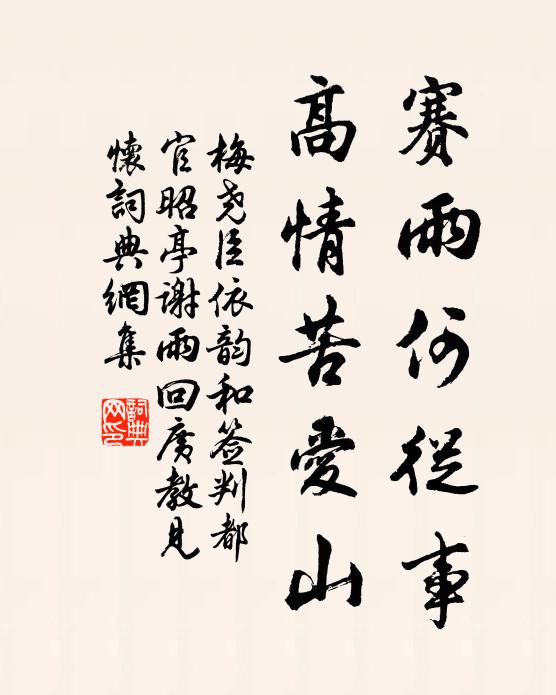 賽雨何從事
高情苦愛山
梅尧臣依韵和签判都
官昭亭谢雨回廣教見
懷詞典網集
詞典
网印